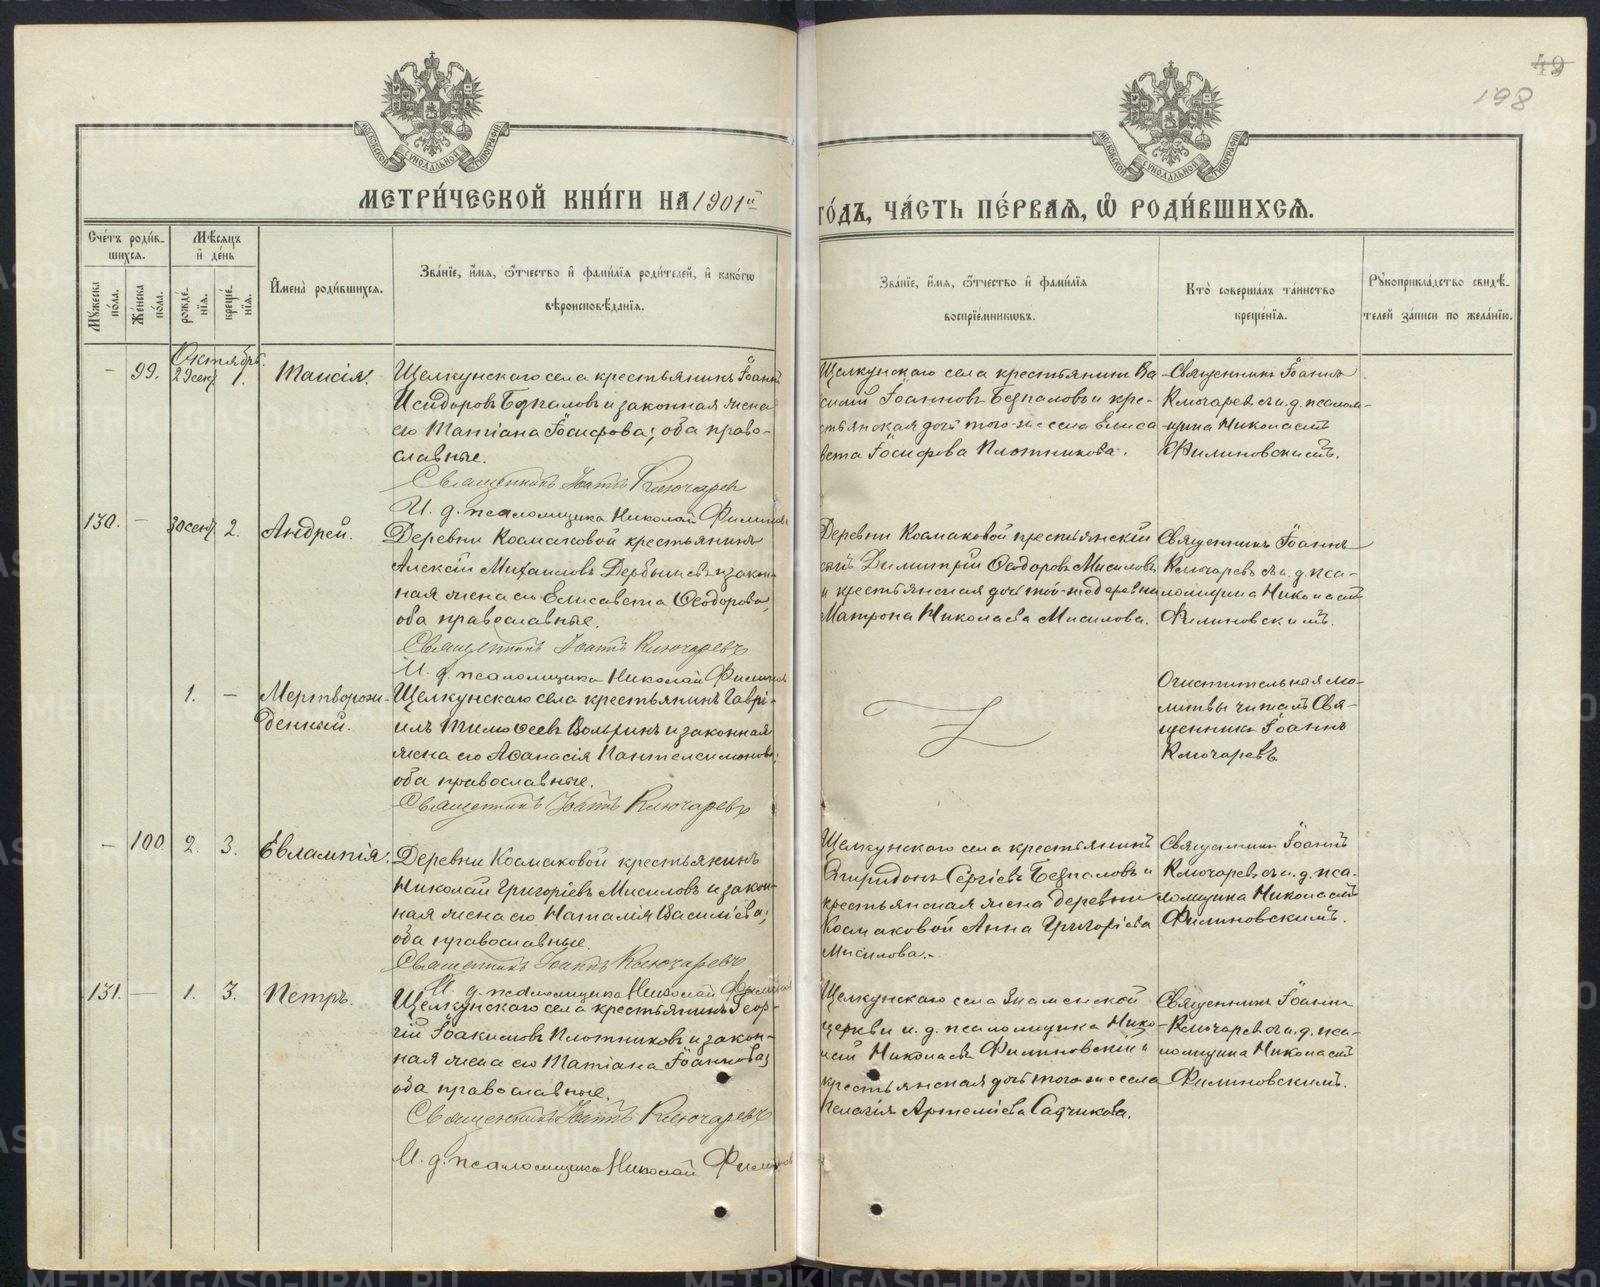 49
198
МОСКОВСКОЙ СѴНОДАЛЬНОЙ ТИПОГРАФІИ
МОСКОВСКОЙ СѴНОДАЛЬНОЙ ТИПОГРАФІИ
МЕТРИ́ЧЕСКОЙ КНИ́ГИ НА 1901й
ГО́ДЪ, ЧА́СТЬ ПЕ́РВАЯ, Ѡ҆ РОДИ́ВШИХСЯ.
Сче́тъ роди́в-
шихся.
Мѣ́сяцъ
и҆ де́нь
Мꙋ́жеска
по́ла.
Же́нска
по́ла.
рожде́-
нїя.
креще́-
нїя.
И҆мена̀ роди́вшихся.
Зва́нїе, и҆́мя, ѻ҆́тчество и҆ фами́лїя роди́телей, и҆ како́гѡ
вѣроисповѣ́данїя.
Зва́нїе, и҆́мя, ѻ҆́тчество и҆ фами́лїя
воспрїе́мникѡвъ.
Кто̀ соверша́лъ та́инство
креще́нїя.
Рꙋкоприкла́дство свидѣ́-
телей за́писи по жела́нїю.
Октябрь
- 99. 29 сен. 1. Таисія.
Щелкунскаго села крестьянинъ Іоаннъ
Исидоровъ Безпаловъ и законная жена
его Татіана Іосифова; оба право-
славные.
Священникъ Іоаннъ Ключарев
И. д. псаломщика Николай Филинов
Щелкунскаго села крестьянинъ Ва-
силій Іоанновъ Безпаловъ и кре-
стьянская дочь того-же села Елиса
вета Іосифова Плотникова.
Священникъ Іоаннъ
Ключаревъ съ и. д. псалом-
щика Николаемъ
Филиновскимъ.
130. - 30 сен. 2. Андрей.
Деревни Космаковой крестьянинъ
Алексій Михаиловъ Дербышевъ и закон-
ная жена его Елисавета Ѳеодорова,
оба православные.
Священникъ Іоаннъ Ключаревъ
И. д. псаломщика Николай Филинов
Деревни Космаковой крестьянскій
сынъ Димитрій Ѳеодоровъ Мисиловъ
и крестьянская дочь той-же деревни
Матрона Николаева Мисилова.
Священникъ Іоаннъ
Ключаревъ съ и. д. пса-
ломщика Николаемъ
Филиновскимъ.
1. - Мертворож-
денный.
Щелкунскаго села крестьянинъ Гаврі-
илъ Тимоѳеевъ и законная
жена его Аѳанасія Пантелеимонова;
оба православные.
Священникъ Іоаннъ Ключаревъ
Очистительная мо-
литвы читалъ Свя-
щенникъ Іоаннъ
Ключаревъ
- 100 2. 3. Евлампія.
Деревни Космаковой крестьянинъ
Николай Григоріевъ Мисиловъ и закон-
ная жена его Наталія Василіева;
оба православные.
Священникъ Іоаннъ Ключаревъ
И. д. псаломщика Николай Филинов
Щелкунскаго села крестьянинъ
Спиридонъ Сергіевъ Безпаловъ и
крестьянская жена деревни
Космаковой Анна Григоріева
Мисилова.
Священникъ Іоаннъ
Ключаревъ съ и. д. пса-
ломщика Николаемъ
Филиновскимъ.
131. - 1. 3. Петръ.
Щелкунскаго села крестьянинъ Геор-
гій Іоакимовъ Плотниковъ и закон-
ная жена его Татіана Іоаннова;
оба православные.
Священникъ Іоаннъ Ключаревъ
И. д. псаломщика Николай Филинов
Щелкунскаго села Знаменской
церкви и. д. псаломщика Нико-
лай Николаевъ Филиновскій и
крестьянская дочь того-же села
Пелагія Артеміева Садчикова.
Священникъ Іоаннъ
Ключаревъ съ и. д. пса-
ломщика Николаемъ
Филиновскимъ.
METRIKI.GASO-URAL.RU